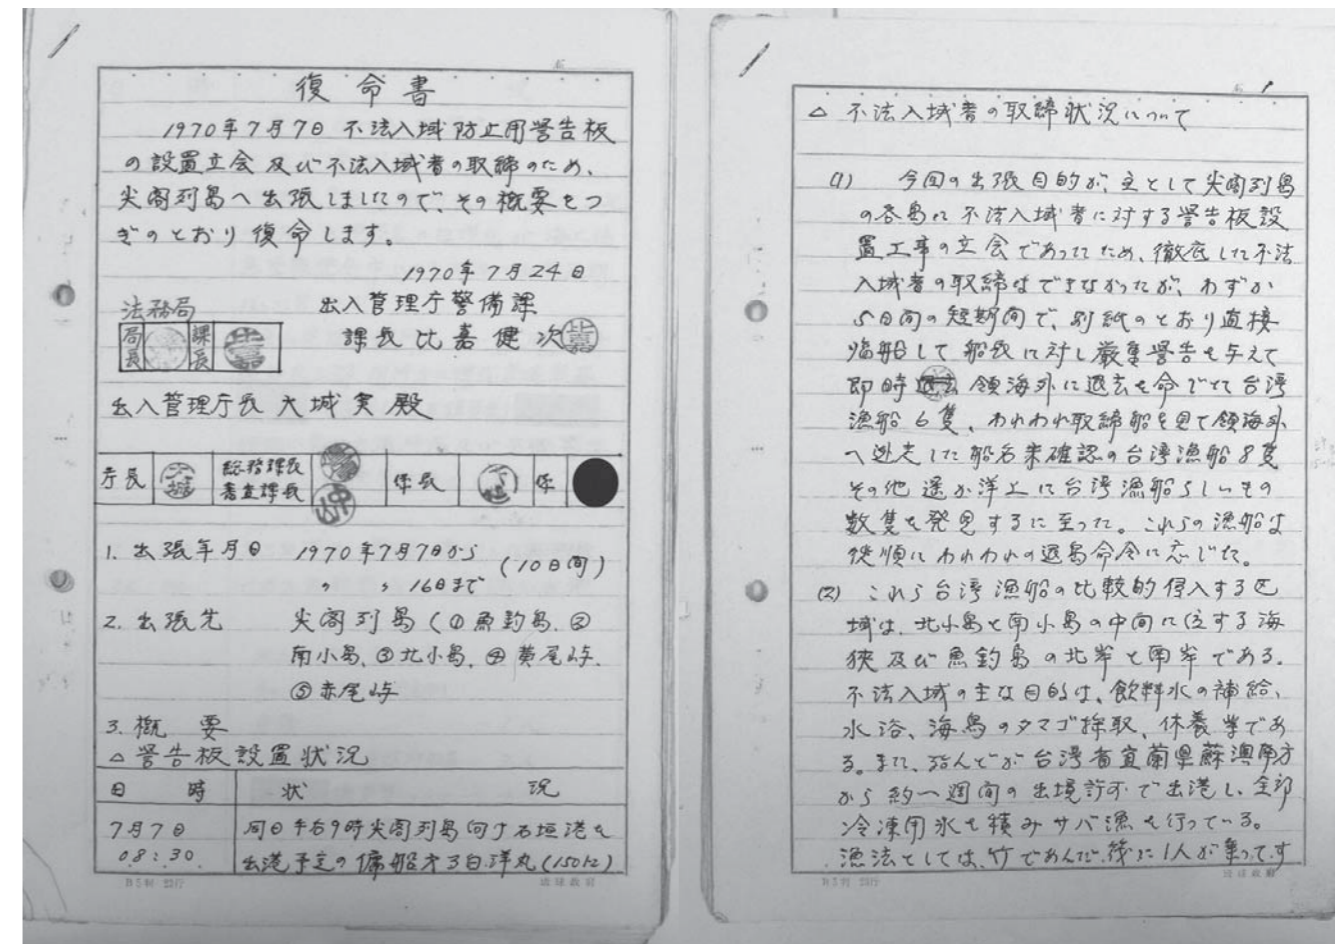 復命書
1970年7月7日 不法入域防止用警告板
の設置立会及び不法入域者の取締のため、
尖閣列島へ出張しましたので、その概要をつ
ぎのとおり復命します。
1970年7月24日
法務局
出入管理庁警備課
局長 課長
課長 比嘉健次
比嘉
出入管理庁長 大城実殿
庁長 総務課長 審査課長 係長 係
1. 出張年月日 1970年7月7日から
〃 〃 16日まで (10日間)
2. 出張先 尖閣列島(①魚釣島、②
南小島、③北小島、④黄尾嶼、
⑤赤尾嶼
3. 概要
△警告板設置状況
日時 状況
7月7日 同日午后9時尖閣列島向け石垣港を
08:30. 出港予定の傭船才3白洋丸(150トン)
B5判 23行
琉球政府
△ 不法入域者の取締状況について
(1) 今回の出張目的が、主として尖閣列島
の各島に不法入域者に対する警告板設
置工事の立会であったため、徹底した不法
入域者の取締はできなかったが、わずか
5日間の短期間で、別紙のとおり直接
臨船して船長に対し厳重警告を与えて
即時領海外に退去を命じてた台湾
漁船6隻、われわれ取締船を見て領海外
へ逃走した船名未確認の台湾漁船8隻
その他遥か洋上に台湾漁船らしいもの
数隻を発見するに至った。これらの漁船は
従順にわれわれの退島命令に応じた。
(2) これら台湾漁船の比較的侵入する区
域は、北小島と南小島の中間に位する海
狭及び魚釣島の北岸と南岸である。
不法入域の主な目的は、飲料水の補給、
水浴、海鳥のタマゴ採取、休養等であ
る。また、殆んどが台湾省宜蘭県蘇澳南方
から約一週間の出境許可で出港し、全部
冷凍用氷を積みサバ漁を行っている。
漁法としては、竹であんだ筏に1人が乗って、す
B5判 23行
琉球政府